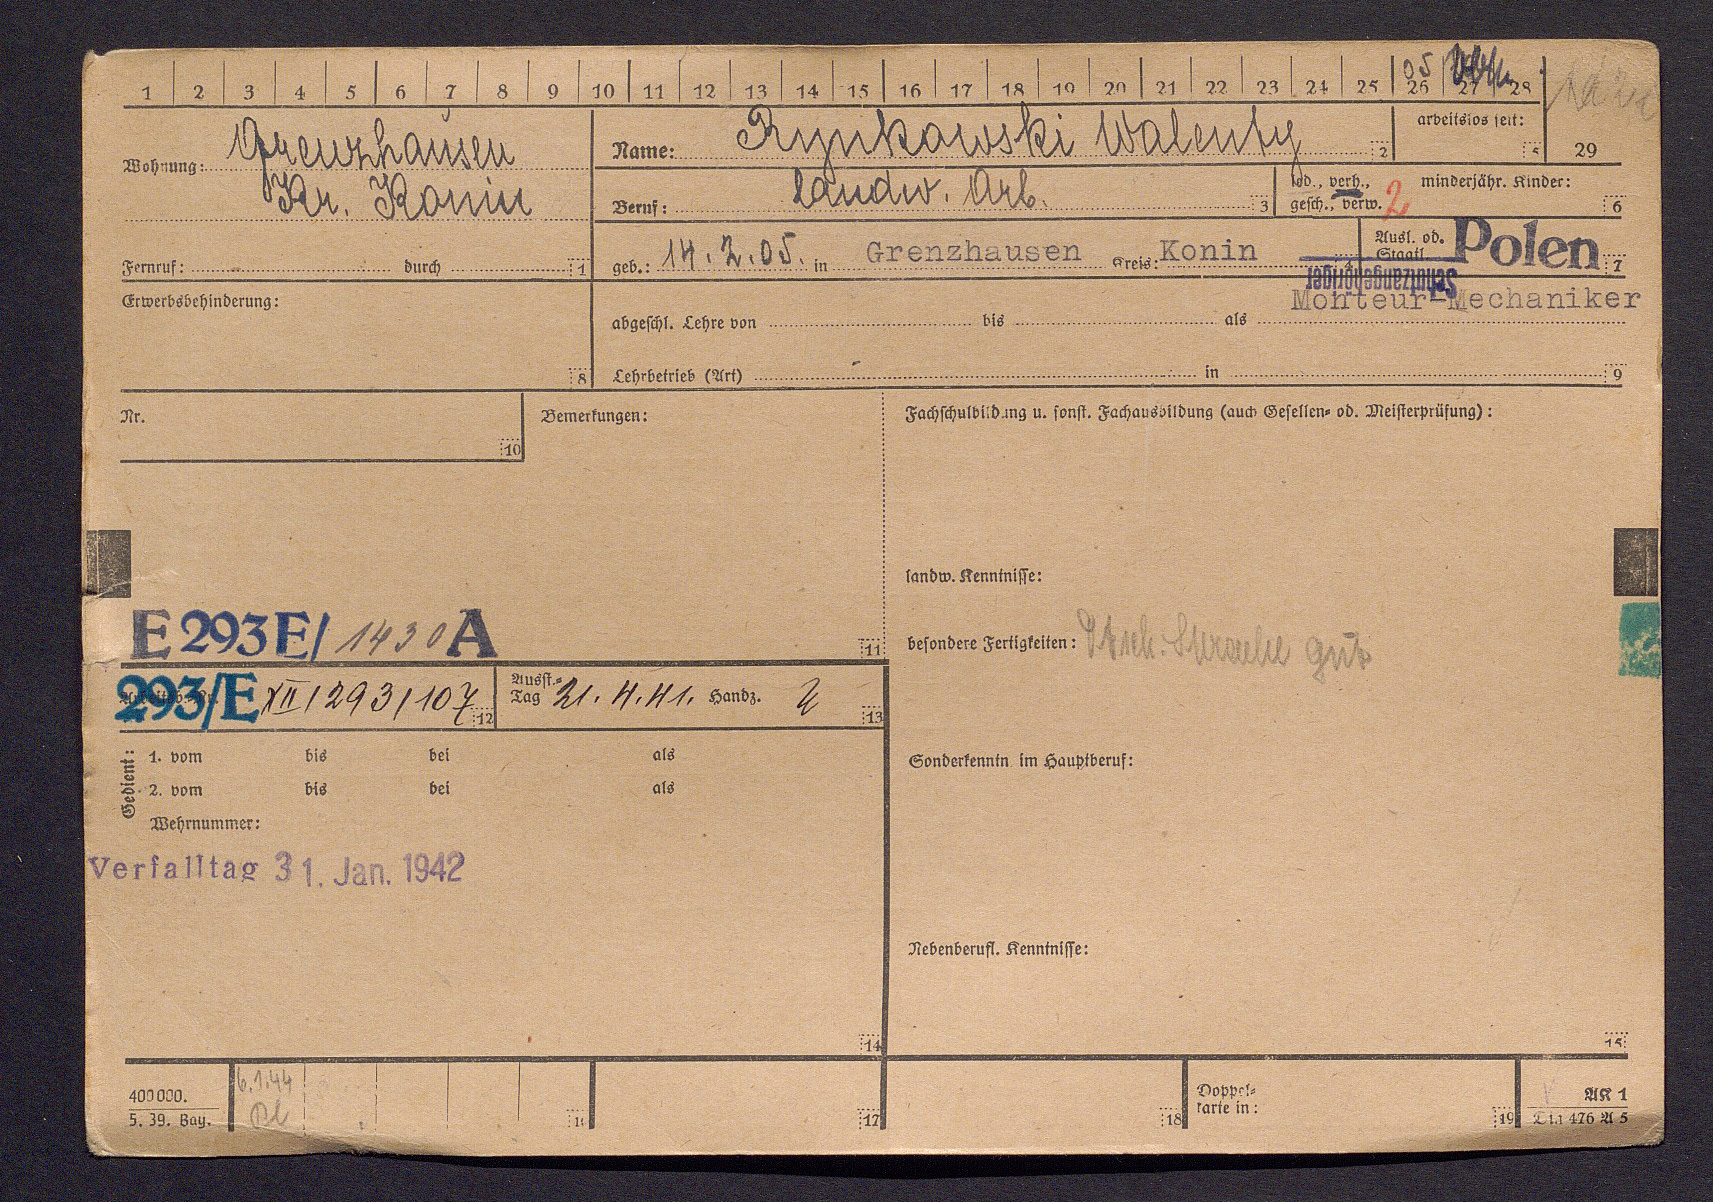 1 2 3 4 5 6 7 8 9 10 11 12 13 14 15 16 17 18 19 20 21 22 23 24 25 26 27 28
05
Wohnung: Grenzhausen
Kr. Konin
Fernruf: durch 1
Name: Rynkowski Walenty 2
arbeitslos seit: 5
29
Beruf: landw. Arb. 3
led., verh., gesch., verw. 2
minderjähr. Kinder: 6
geb.: 14.2.05. in Grenzhausen Kreis: Konin 4
Ausl. od. Staatl. Polen 7
Schutzangehöriger
Erwerbsbehinderung: 8
Monteur-Mechaniker
abgeschl. Lehre von bis als
Lehrbetrieb (Art) in 9
Nr. 10
Bemerkungen:
Fachschulbildung u. sonst. Fachausbildung (auch Gesellen- od. Meisterprüfung):
landw. Kenntnisse:
E 293 E/ 1430 A 11
besondere Fertigkeiten: Dtsch. Sprache gut
293/E XII/293/107 12
Ausst.-Tag 21.4.41. Handz. 13
Gedient:
1. vom bis bei als
2. vom bis bei als
Wehrnummer:
Sonderkenntn. im Hauptberuf:
Verfalltag 31. Jan. 1942
Nebenberufl. Kenntnisse:
14
15
400000.
5. 39. Bay.
6.1.44
16
17
18
Doppel-
karte in: 19
AK 1
Din 476 A 5